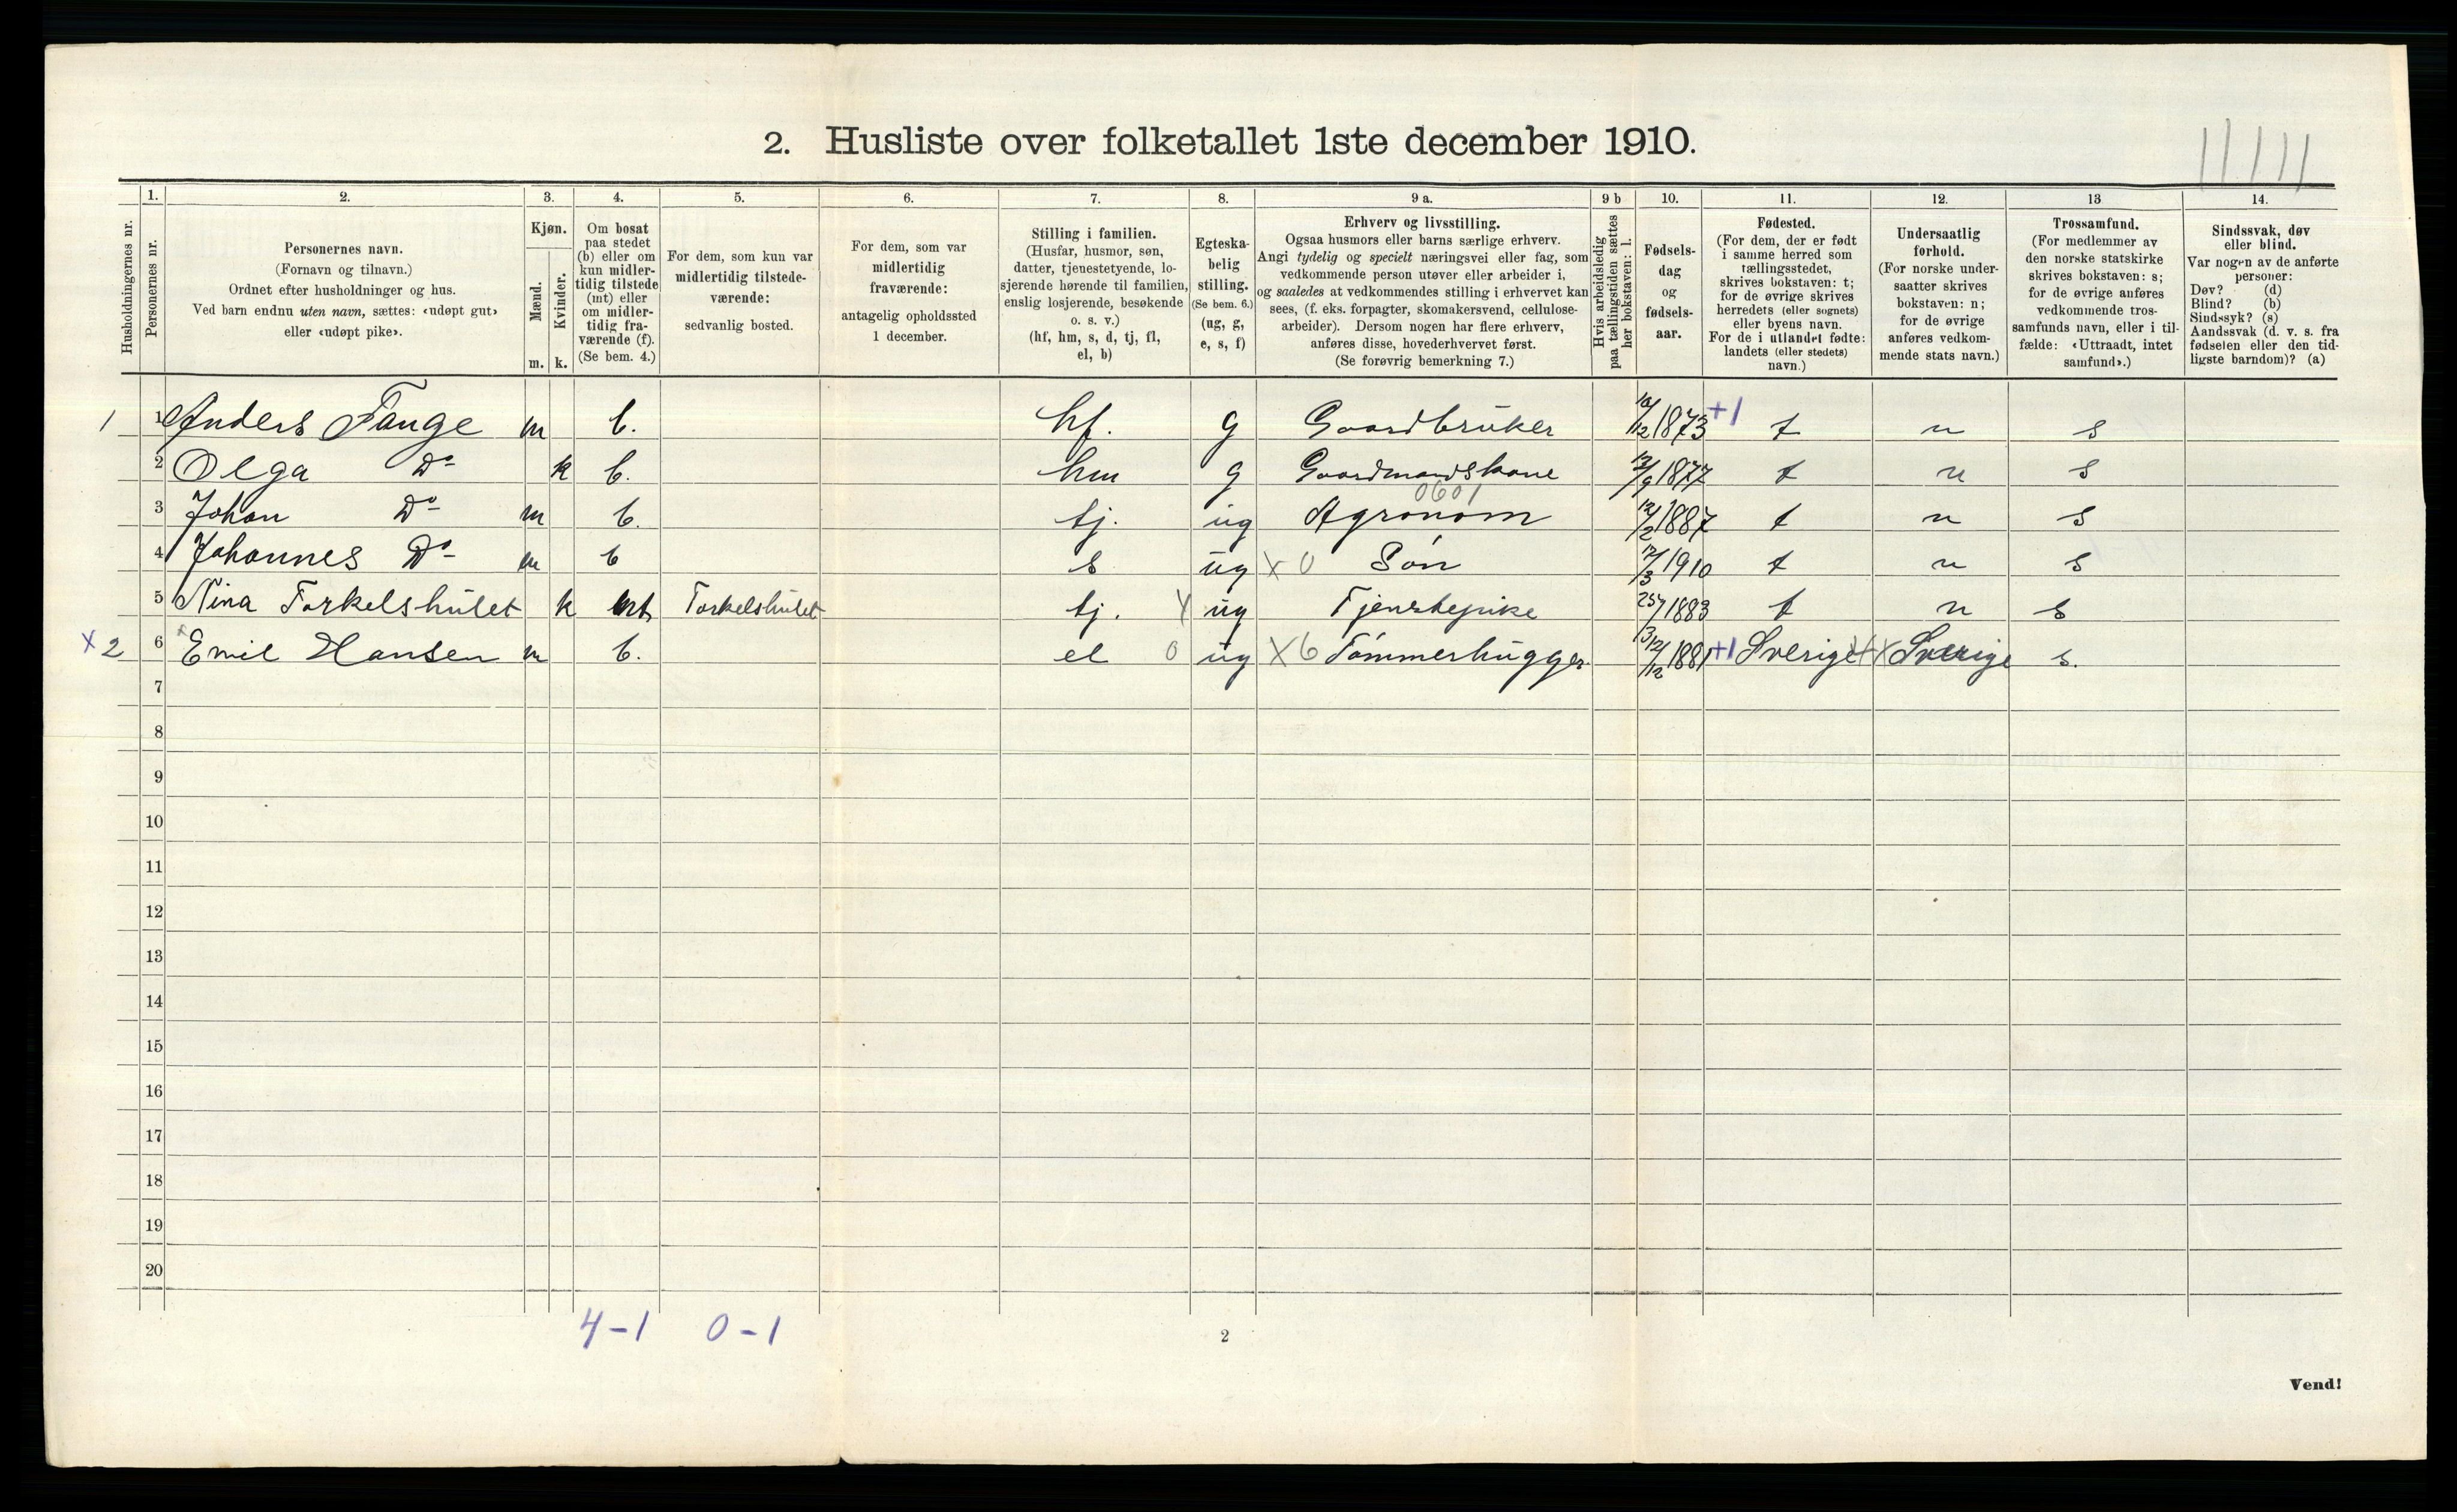 2. Husliste over folketallet 1ste december 1910.
Husholdningernes nr.
1. Personernes nr.
2. Personernes navn.
(Fornavn og tilnavn.)
Ordnet efter husholdninger og hus.
Ved barn endnu uten navn, sættes: «udøpt gut»
eller «udøpt pike».
3. Kjøn.
Mænd. m.
Kvinder. k.
4. Om bosat
paa stedet
(b) eller om
kun midler-
tidig tilstede
(mt) eller
om midler-
tidig fra-
værende (f).
(Se bem. 4.)
5. For dem, som kun var
midlertidig tilstede-
værende:
sedvanlig bosted.
6. For dem, som var
midlertidig
fraværende:
antagelig opholdssted
1 december.
7. Stilling i familien.
(Husfar, husmor, søn,
datter, tjenestetyende, lo-
sjerende hørende til familien,
enslig losjerende, besøkende
o. s. v.)
(hf, hm, s, d, tj, fl,
el, b)
8. Egteska-
belig
stilling.
(Se bem. 6.)
(ug, g,
e, s, f)
9 a. Erhverv og livsstilling.
Ogsaa husmors eller barns særlige erhverv.
Angi tydelig og specielt næringsvei eller fag, som
vedkommende person utøver eller arbeider i,
og saaledes at vedkommendes stilling i erhvervet kan
sees, (f. eks. forpagter, skomakersvend, cellulose-
arbeider). Dersom nogen har flere erhverv,
anføres disse, hovederhvervet først.
(Se forøvrig bemerkning 7.)
9 b Hvis arbeidsledig
paa tællingstiden sættes
her bokstaven: l.
10. Fødsels-
dag
og
fødsels-
aar.
11. Fødested.
(For dem, der er født
i samme herred som
tællingsstedet,
skrives bokstaven: t;
for de øvrige skrives
herredets (eller sognets)
eller byens navn.
For de i utlandet fødte:
landets (eller stedets)
navn.)
12. Undersaatlig
forhold.
(For norske under-
saatter skrives
bokstaven: n;
for de øvrige
anføres vedkom-
mende stats navn.)
13 Trossamfund.
(For medlemmer av
den norske statskirke
skrives bokstaven: s;
for de øvrige anføres
vedkommende tros-
samfunds navn, eller i til-
fælde: «Uttraadt, intet
samfund».)
14. Sindssvak, døv
eller blind.
Var nogen av de anførte
personer:
Døv? (d)
Blind? (b)
Sindssyk? (s)
Aandssvak (d. v. s. fra
fødselen eller den tid-
ligste barndom)? (a)
1 1 Anders Tange m b. hf. g Gaardbruker 10/12 1873 +1 t n s
2 Olga Do k b. hm g Gaardmandskone 1877 t n s
0601
3 Johan Do m b. tj. ug Agronom 12/2 1887 t n s
4 Johannes Do m b s ug x 0 Søn 12/3 1910 t n s
5 Nina Torkelshulet k mt Torkelshulet tj. ug Tjenstepike 25/7 1883 t n s
x 2 6 Emil Hansen m b. el 0 ug X 6 Tømmerhugger 1881 +1 Sverige x Sverige s.
7
8
9
10
11
12
13
14
15
16
17
18
19
20
4-1 0-1
2
Vend!